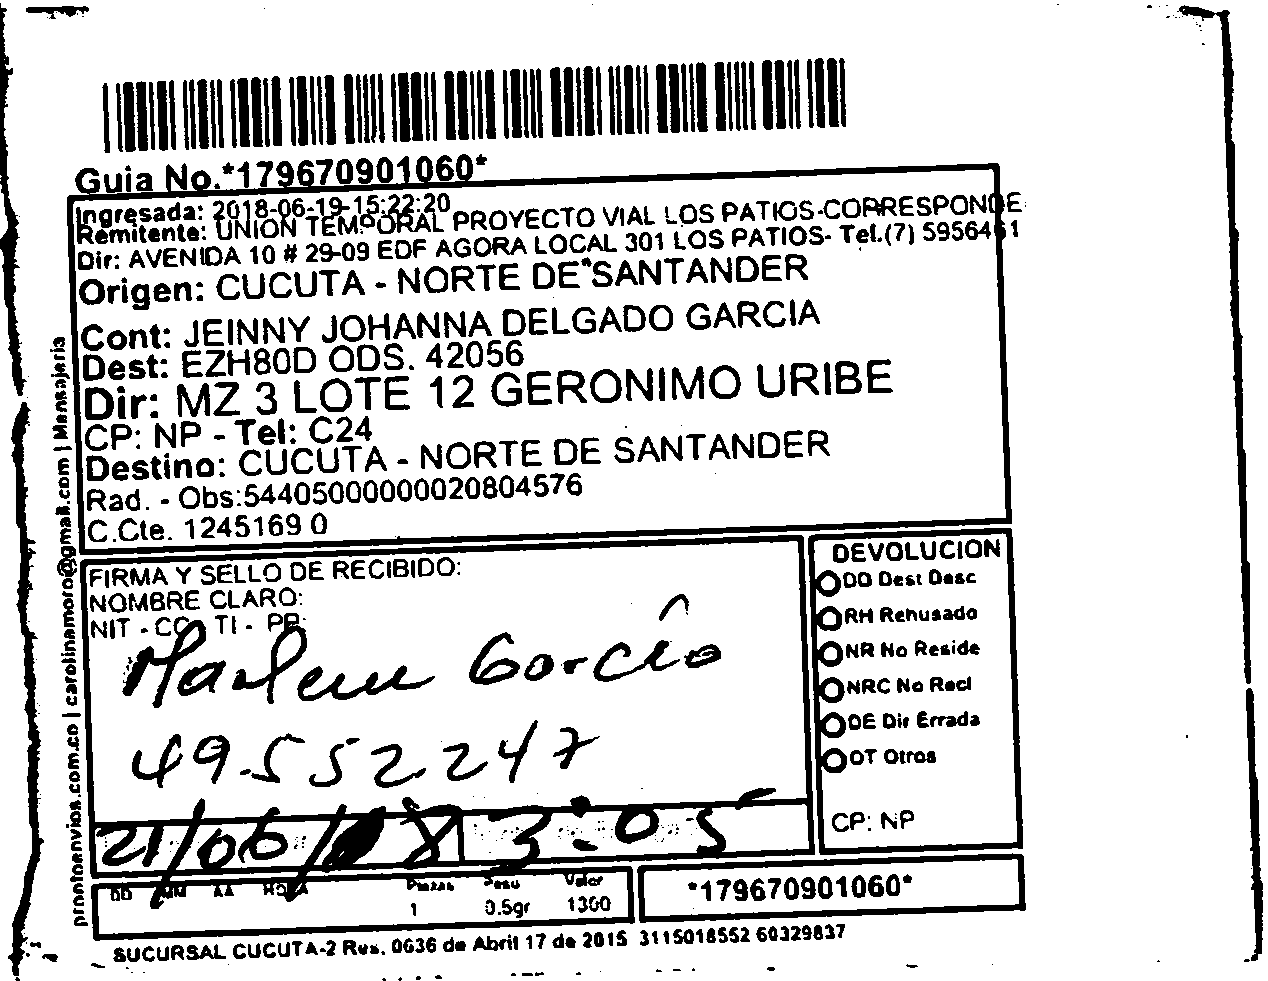 Guia No.*179670901060*
Ingresada: 2018-06-19-15:22:20
Remitente: UNION TEMPORAL PROYECTO VIAL LOS PATIOS-CORRESPONDE
Dir: AVENIDA 10 # 29-09 EDF AGORA LOCAL 301 LOS PATIOS- Tel.(7) 5956461
Origen: CUCUTA - NORTE DE SANTANDER
Cont: JEINNY JOHANNA DELGADO GARCIA
Dest: EZH80D ODS. 42056
Dir: MZ 3 LOTE 12 GERONIMO URIBE
CP: NP - Tel: C24
Destino: CUCUTA - NORTE DE SANTANDER
Rad. - Obs:54405000000020804576
C.Cte. 1245169 0
prontoenvios.com.co | carolinamoro@gmail.com | Mensajeria
FIRMA Y SELLO DE RECIBIDO:
NOMBRE CLARO:
NIT - CC - TI - PP:
Marlene Garcia
49.552.247
21/06/18 3:05
DD MM AA HORA
Piezas Peso Valor
1 0.5gr 1300
DEVOLUCION
DD Dest Desc
RH Rehusado
NR No Reside
NRC No Recl
DE Dir Errada
OT Otros
CP: NP
*179670901060*
SUCURSAL CUCUTA-2 Res. 0636 de Abril 17 de 2015 3115018552 60329837